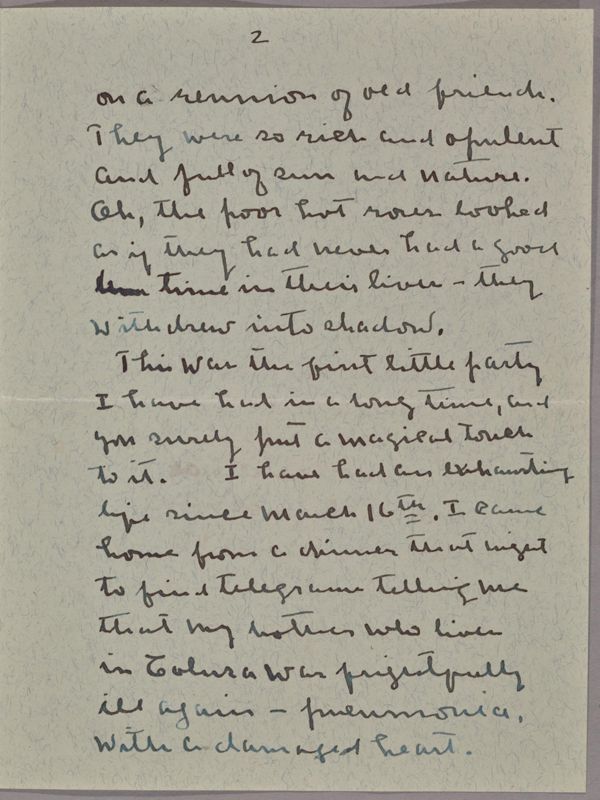 2
on a reunion of old friends.
They were so rich and opulent
and full of sun and nature.
Oh, the poor hot roses looked
as if they had never had a good
time in their lives – they
withdrew into shadow.
This was the first little party
I have had in a long time, and
you surely put a magical touch
to it. I have had an exhausting
life since March 16th. I came
home from a dinner that night
to find telegrams telling me
that my mother who lives
in was frightfully
ill again – pneumonia,
with a damaged heart.